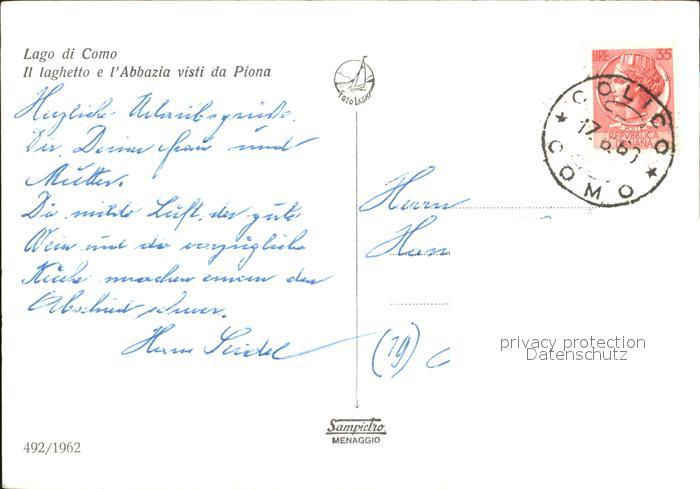 Lago di Como
Il laghetto e l'Abbazia visti da Piona
FOTO LAGHI
LIRE 35
POSTE
REPVBBLICA
ITALIANA
COLICO
17.6.6
COMO
Herzliche Urlaubsgrüsse
Dir, Deiner Frau und
Mutter.
Die milde Luft, der gute
Wein und die vorzügliche
Küche machen einem den
Abschied schwer.
Seidel
Herrn
Han
(19)
privacy protection
Datenschutz
Sampietro
MENAGGIO
492/1962